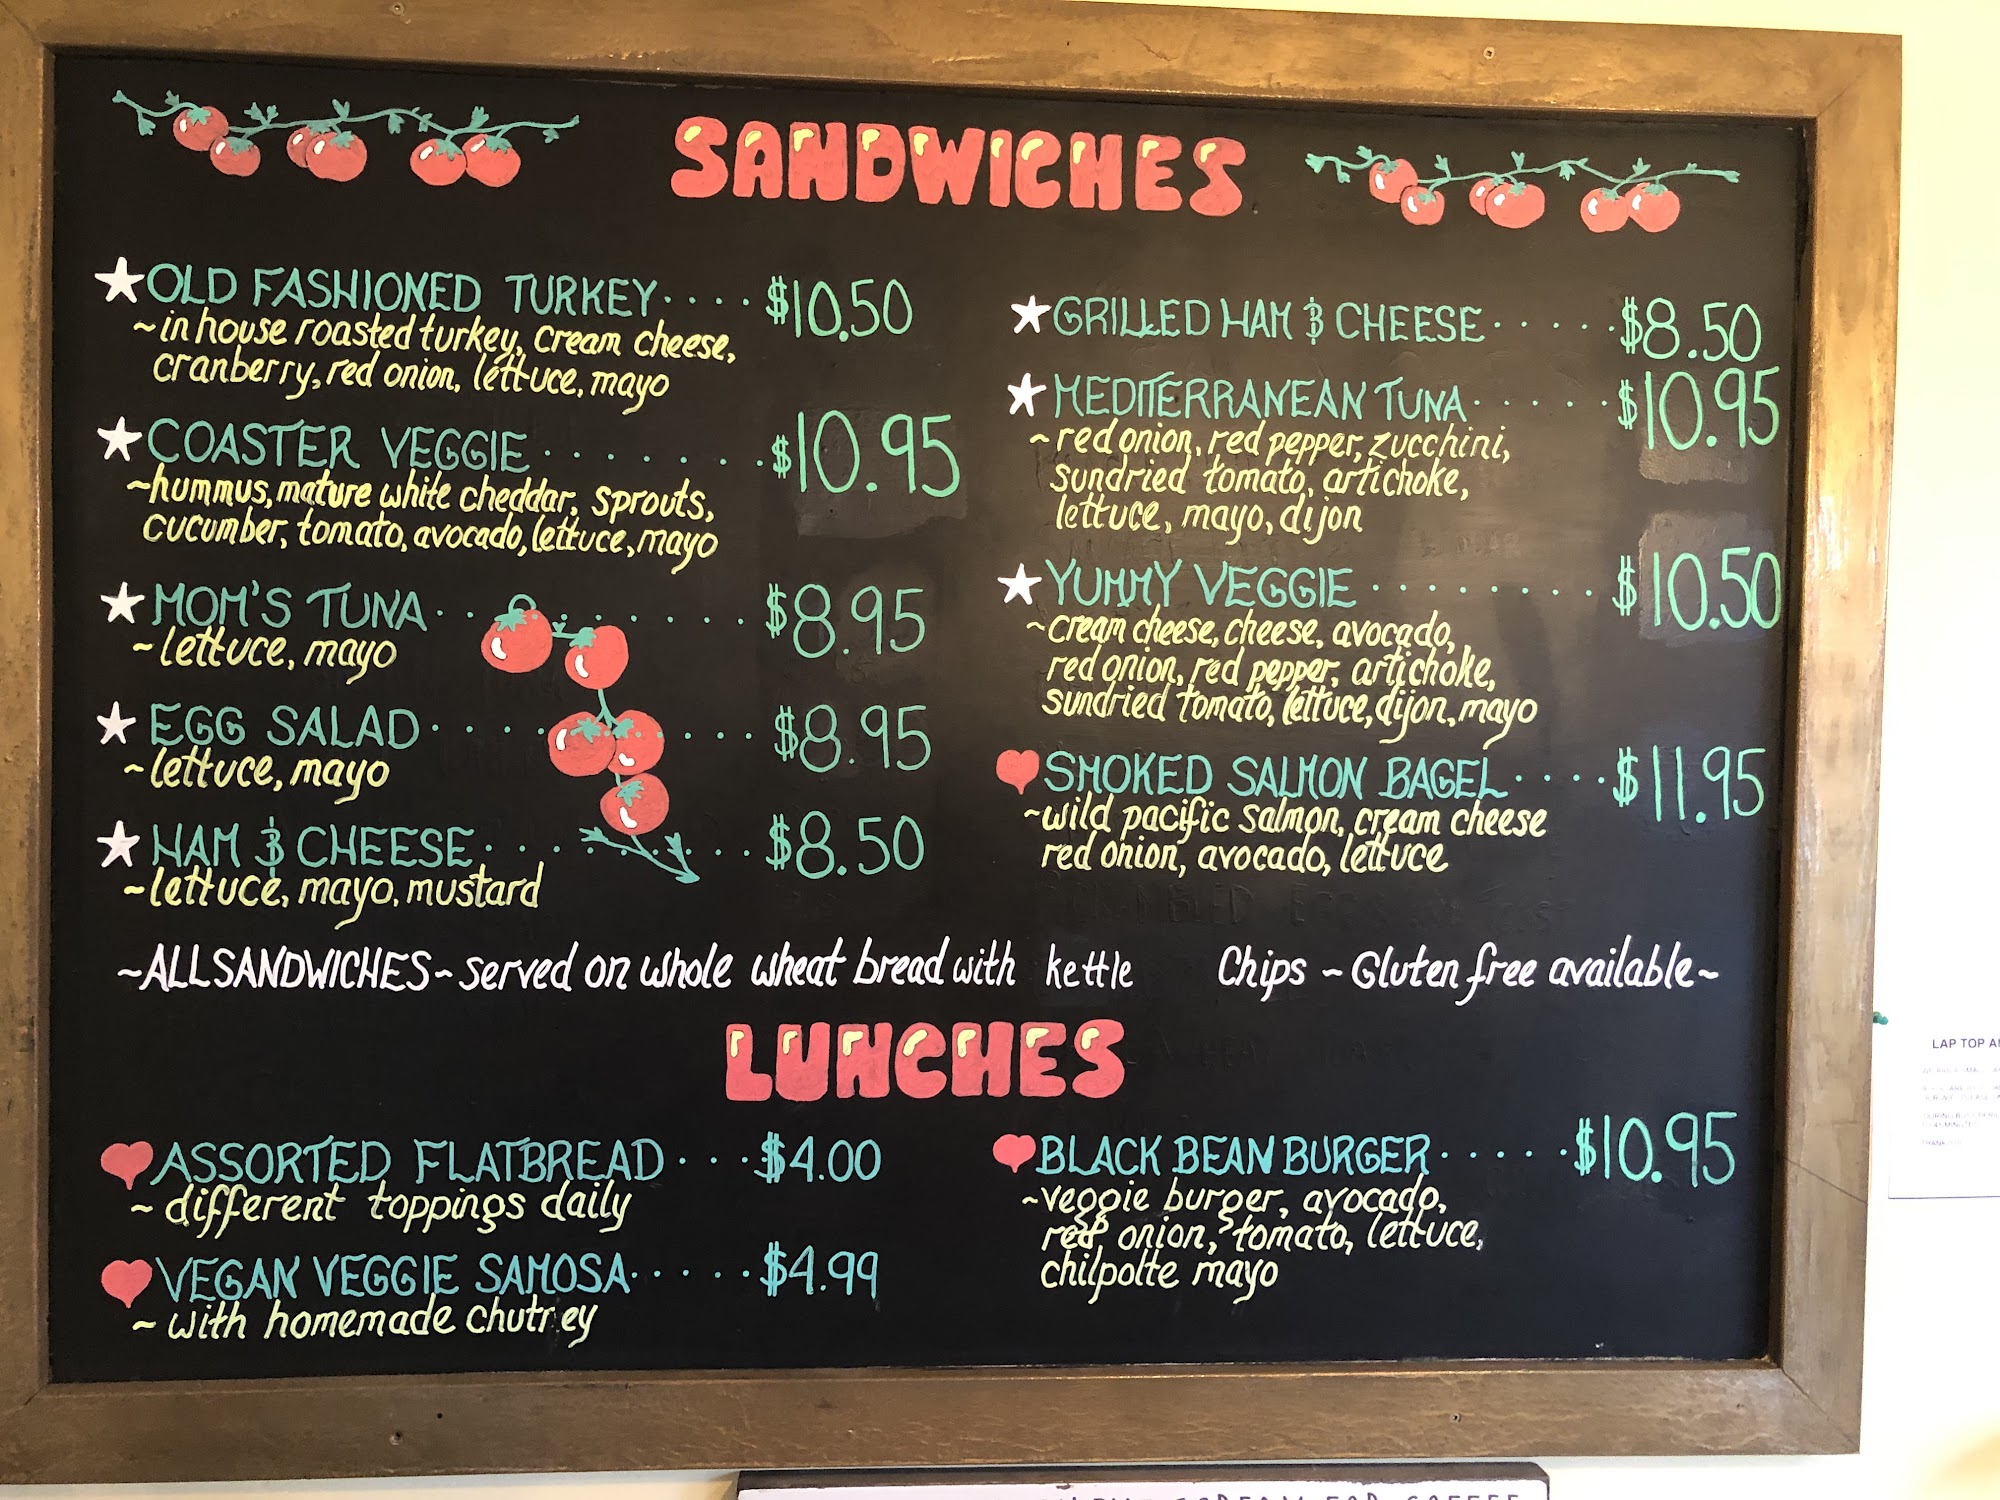 SANDWICHES
OLD FASHIONED TURKEY.... $10.50
~in house roasted turkey, cream cheese,
cranberry, red onion, lettuce, mayo
COASTER VEGGIE....... $10.95
~hummus, mature white cheddar, sprouts,
cucumber, tomato, avocado, lettuce, mayo
MOM'S TUNA....... $8.95
~lettuce, mayo
EGG SALAD....... $8.95
~lettuce, mayo
HAM & CHEESE....... $8.50
~lettuce, mayo, mustard
GRILLED HAM & CHEESE..... $8.50
MEDITERRANEAN TUNA..... $10.95
~red onion, red pepper, zucchini,
sundried tomato, artichoke,
lettuce, mayo, dijon
YUMMY VEGGIE........ $10.50
~cream cheese, cheese, avocado,
red onion, red pepper, artichoke,
sundried tomato, lettuce, dijon, mayo
SMOKED SALMON BAGEL.... $11.95
~wild pacific salmon, cream cheese
red onion, avocado, lettuce
~ALL SANDWICHES~ served on whole wheat bread with kettle Chips ~ Gluten free available~
LUNCHES
ASSORTED FLATBREAD... $4.00
~ different toppings daily
VEGAN VEGGIE SAMOSA..... $4.99
~ with homemade chutney
BLACK BEAN BURGER..... $10.95
~veggie burger, avocado,
red onion, tomato, lettuce,
chilpolte mayo
LAP TOP